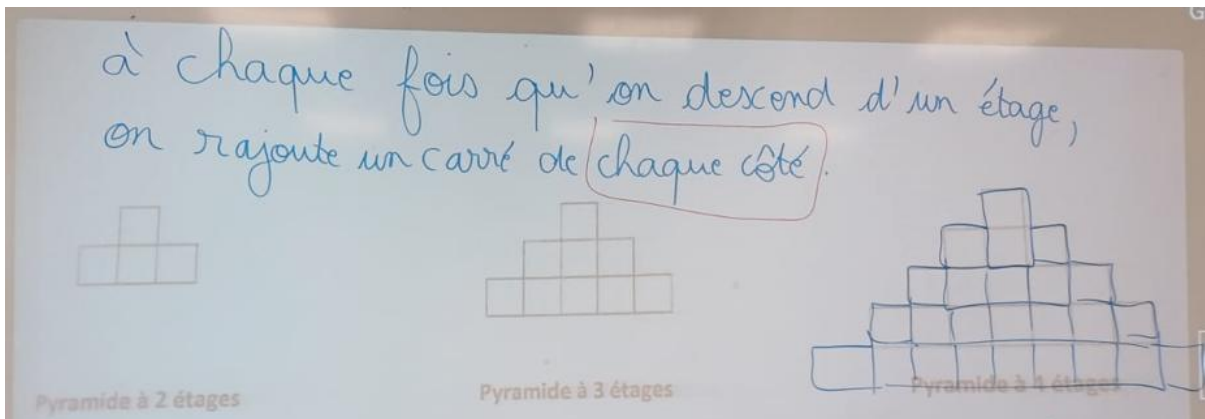 à chaque fois qu'on descend d'un étage,
on rajoute un carré de chaque côté.
Pyramide à 2 étages
Pyramide à 3 étages
Pyramide à 4 étages
G